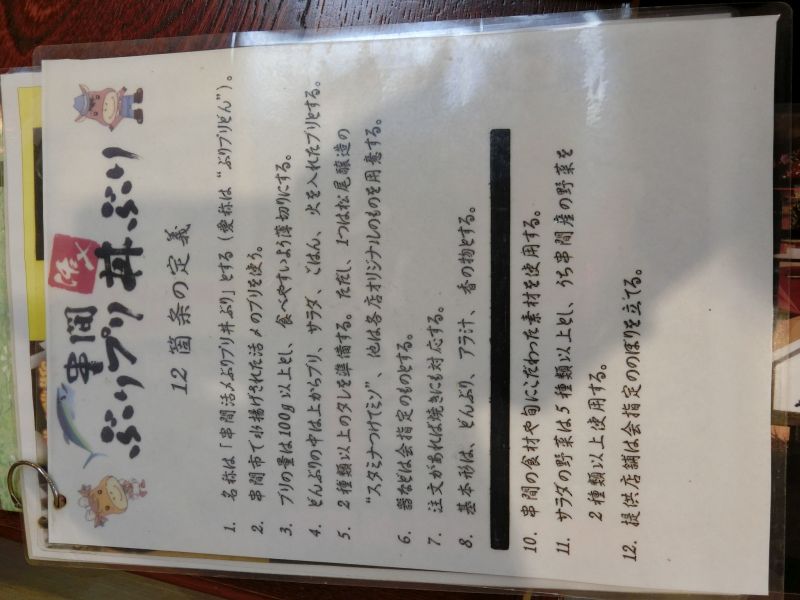 串間
活〆
ぶりプリ丼ぶり
12箇条の定義
1. 名称は「串間活〆ぶりプリ丼ぶり」とする（愛称は“ぶりプリどん”）。
2. 串間市で水揚げされた活〆のブリを使う。
3. ブリの量は100g以上とし、食べやすいよう薄切りにする。
4. どんぶりの中は上からブリ、サラダ、ごはん、火を入れたブリとする。
5. 2種類以上のタレを準備する。ただし、1つは松尾醸造の
“スタミナつけてミソ”、他は各店オリジナルのものを用意する。
6. 器などは会指定のものとする。
7. 注文があれば焼きにも対応する。
8. 基本形は、どんぶり、アラ汁、香の物とする。
10. 串間の食材や旬にこだわった素材を使用する。
11. サラダの野菜は5種類以上とし、うち串間産の野菜を
2種類以上使用する。
12. 提供店舗は会指定ののぼりを立てる。